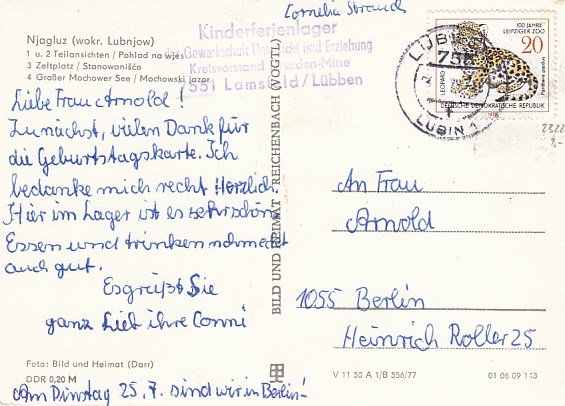 Cornelia Strauch
Njagluz (wokr. Lubnjow)
1 u. 2 Teilansichten / Pohlad na wjes
3 Zeltplatz / Stanowanišćo
4 Großer Mochower See / Mochowski jazor
Kinderferienlager
Gewerkschaft Unterricht und Erziehung
Kreisvorstand Dresden-Mitte
7551 Lamsfeld / Lübben
Liebe Frau Arnold!
Zunächst, vielen Dank für
die Geburtstagskarte. Ich
bedanke mich recht Herzlich.
Hier im Lager ist es sehr schön
Essen und trinken schmeckt
auch gut.
Es grüßt Sie
ganz Lieb ihre Conni
Foto: Bild und Heimat (Darr)
DDR 0,20 M
Am Dinstag 25.7. sind wir in Berlin!
BILD UND HEIMAT · REICHENBACH (VOGTL)
100 JAHRE
LEIPZIGER ZOO
20
LEOPARD
Panthera pardus
DEUTSCHE DEMOKRATISCHE REPUBLIK
1978
LÜBBEN
755
LUBIN 1
An Frau
Arnold
1055 Berlin
Heinrich Roller 25
V 11 50 A 1/B 556/77
01 06 09 148